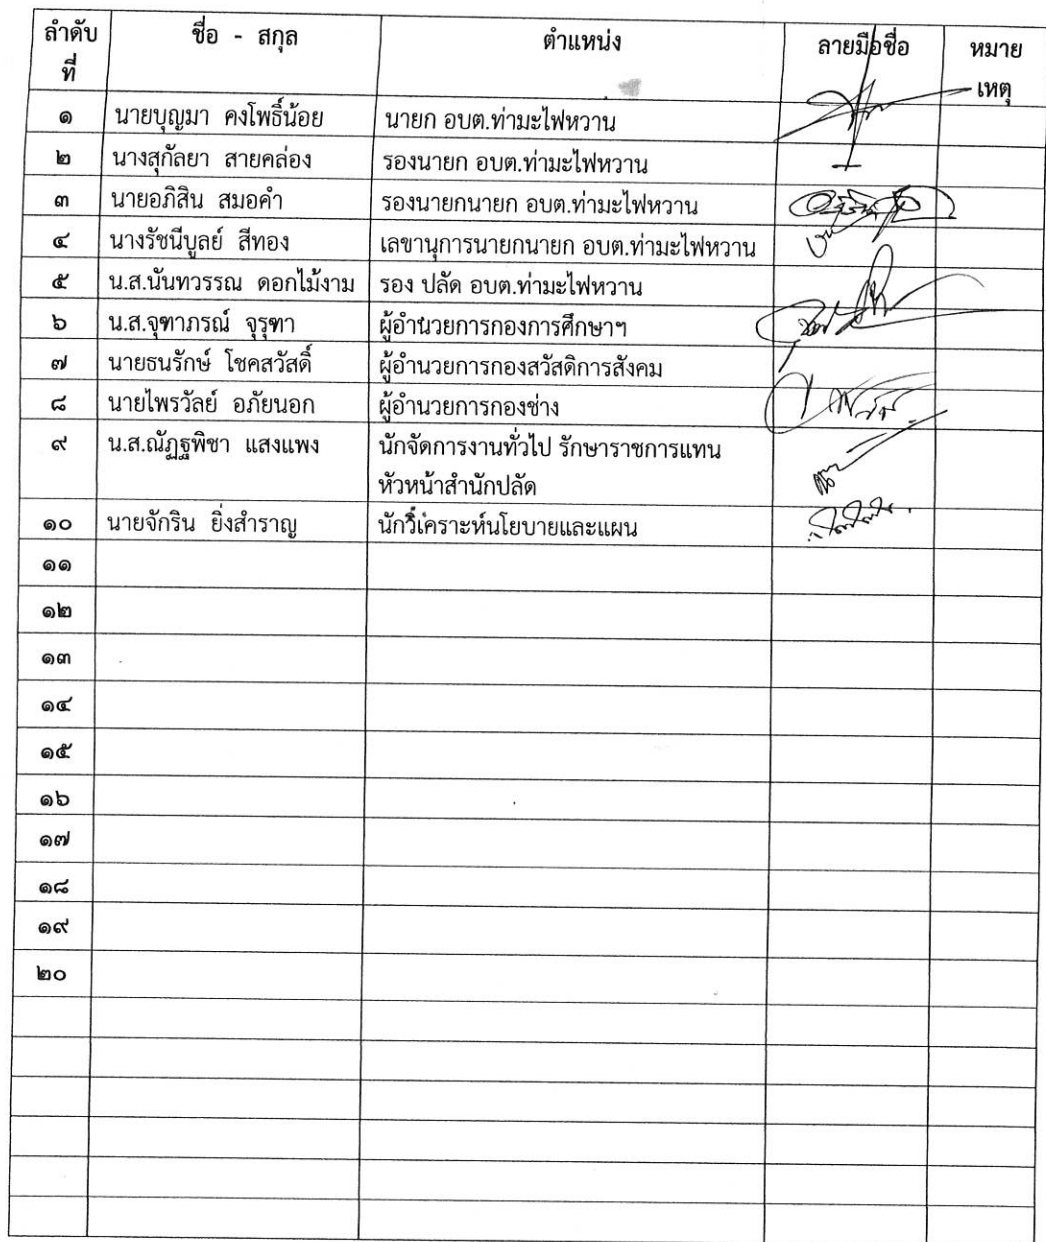 ลำดับ ชื่อ - สกุล ตำแหน่ง ลายมือชื่อ หมาย
ที่ เหตุ
๑ นายบุญมา คงโพธิ์น้อย นายก อบต.ท่ามะไฟหวาน
๒ นางสุกัลยา สายคล่อง รองนายก อบต.ท่ามะไฟหวาน
๓ นายอภิสิน สมอคำ รองนายกนายก อบต.ท่ามะไฟหวาน
๔ นางรัชนีบูลย์ สีทอง เลขานุการนายกนายก อบต.ท่ามะไฟหวาน
๕ น.ส.นันทวรรณ ดอกไม้งาม รอง ปลัด อบต.ท่ามะไฟหวาน
๖ น.ส.จุฑาภรณ์ จุรุฑา ผู้อำนวยการกองการศึกษาฯ
๗ นายธนรักษ์ โชคสวัสดิ์ ผู้อำนวยการกองสวัสดิการสังคม
๘ นายไพรวัลย์ อภัยนอก ผู้อำนวยการกองช่าง
๙ น.ส.ณัฏฐพิชา แสงแพง นักจัดการงานทั่วไป รักษาราชการแทน
หัวหน้าสำนักปลัด
๑๐ นายจักริน ยิ่งสำราญ นักวิเคราะห์นโยบายและแผน
๑๑
๑๒
๑๓
๑๔
๑๕
๑๖
๑๗
๑๘
๑๙
๒๐